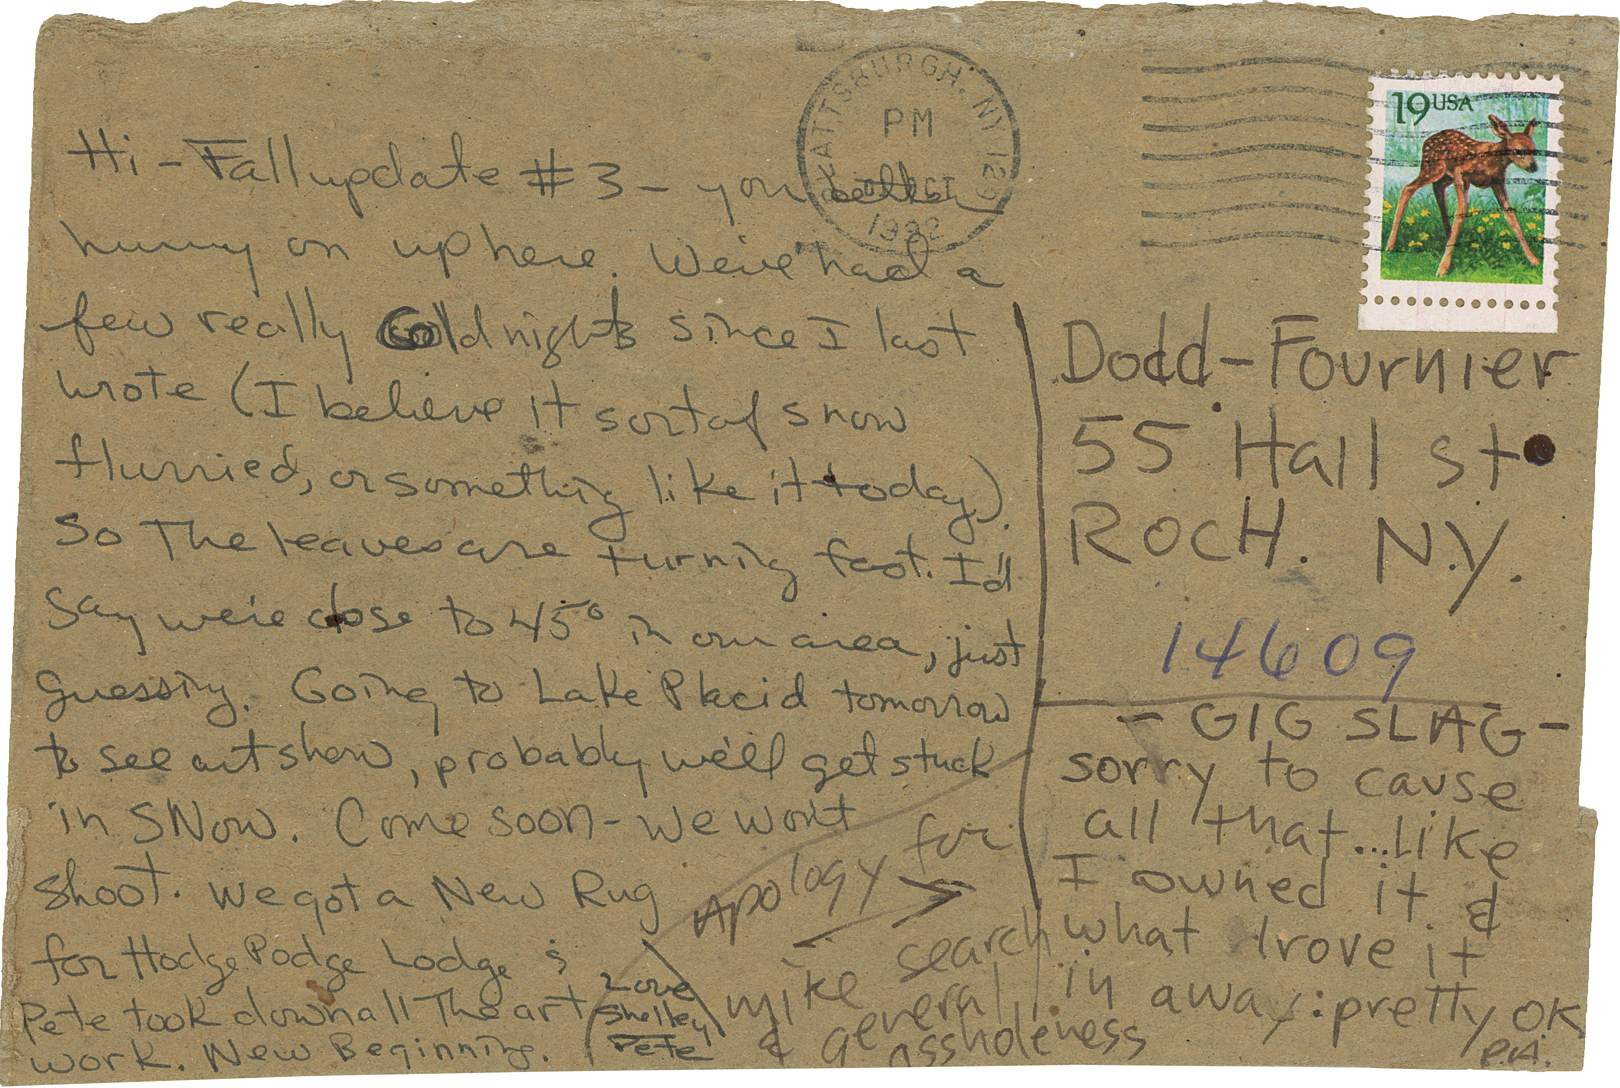 PLATTSBURGH, NY 129
PM
OCT
1992
19 USA
Hi - Fall update #3 - you better
hurry on up here. We've had a
few really Cold nights since I last
wrote (I believe it sort of snow
flurried, or something like it today).
So The leaves are turning fast. I'd
say we're close to 45° in our area, just
guessing. Going to Lake Placid tomorrow
to see art show, probably we'll get stuck
in SNow. Come soon - we won't
shoot. We got a New Rug
for Hodge Podge Lodge &
Pete took down all The art
work. New Beginning.
Love
Shelley
Pete
Apology for
mike search
& general
assholeness
Dodd-Fournier
55 Hall st.
ROCH. N.Y.
14609
- GIG SLAG -
sorry to cause
all that...like
I owned it &
what trove it
in away: pretty OK
P.A.